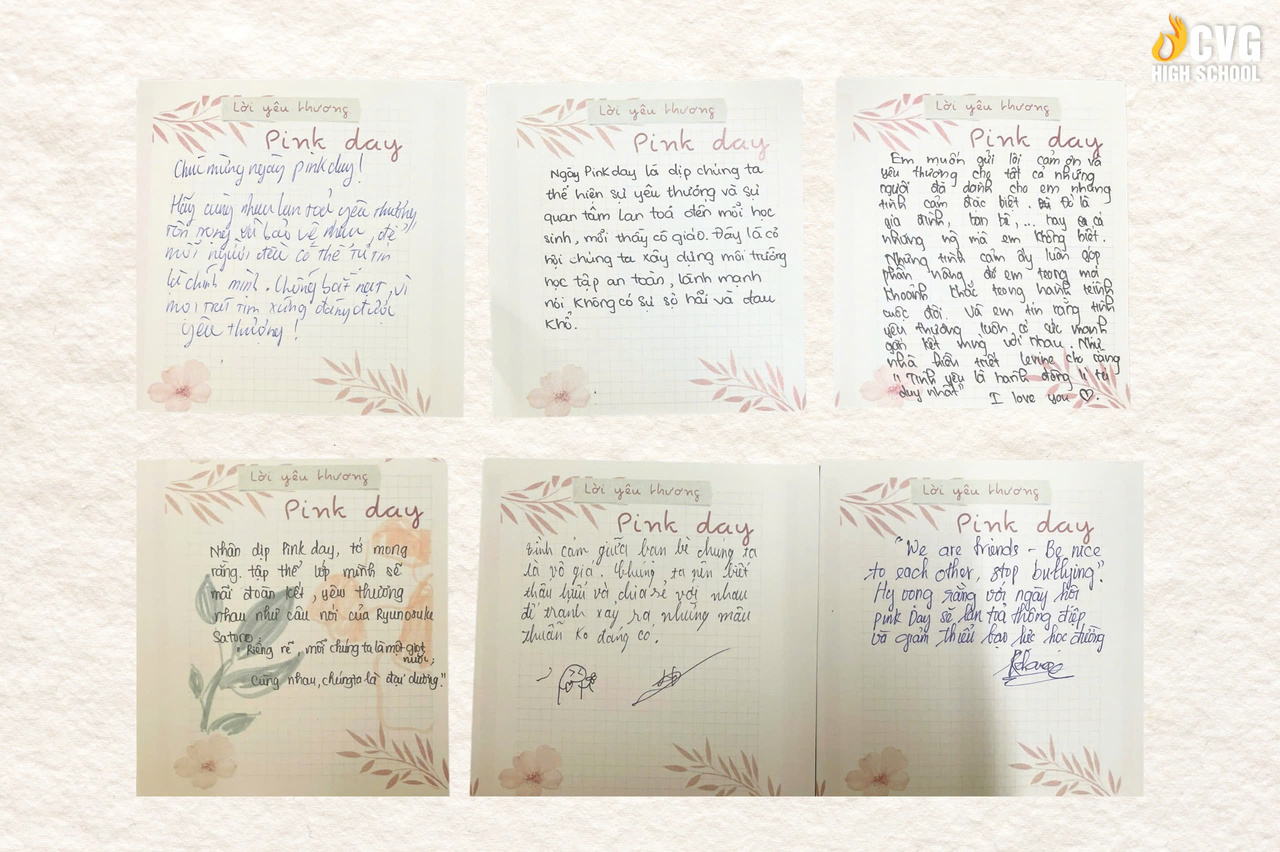 CVG
HIGH SCHOOL
Lời yêu thương
Pink day
Chúc mừng ngày pink day!
Hãy cùng nhau lan toả yêu thương,
tôn trọng và bảo vệ nhau, để
mỗi người đều có thể tự tin
là chính mình. Chống bắt nạt, vì
mọi trái tim xứng đáng được
yêu thương!
Lời yêu thương
Pink day
Ngày Pink day là dịp chúng ta
thể hiện sự yêu thương và sự
quan tâm lan toả đến mỗi học
sinh, mỗi thầy cô giáo. Đây là cơ
hội chúng ta xây dựng môi trường
học tập an toàn, lành mạnh
nơi không có sự sợ hãi và đau
khổ.
Lời yêu thương
Pink day
Em muốn gửi lời cảm ơn và
yêu thương cho tất cả những
người đã dành cho em những
tình cảm đặc biệt. Đó là
gia đình, bạn bè,... hay cả
những ng mà em không biết.
Những tình cảm ấy luôn góp
phần nâng đỡ em trong mọi
khoảnh khắc trong hành trình
cuộc đời. Và em tin rằng tình
yêu thương luôn có sức mạnh
gắn kết mng với nhau. Như
nhà triết levine cho rằng
"Tình yêu là hành động
duy nhất" I love you
Lời yêu thương
Pink day
Nhân dịp Pink day, tớ mong
rằng tập thể lớp mình sẽ
mãi đoàn kết, yêu thương
nhau như câu nói của Ryunosuke
Satoro:
"Riêng rẽ, mỗi chúng ta là một giọt
nước;
Cùng nhau, chúng ta là đại dương."
Lời yêu thương
Pink day
Tình cảm giữa bạn bè chúng ta
là vô giá. Chúng ta nên biết
thấu hiểu và chia sẻ với nhau
để tránh xảy ra những mâu
thuẫn ko đáng có.
Lời yêu thương
Pink day
"We are friends - Be nice
to each other, stop bullying".
Hy vọng rằng với ngày hội
Pink Day sẽ lan toả thông điệp
và giảm thiểu bạo lực học đường